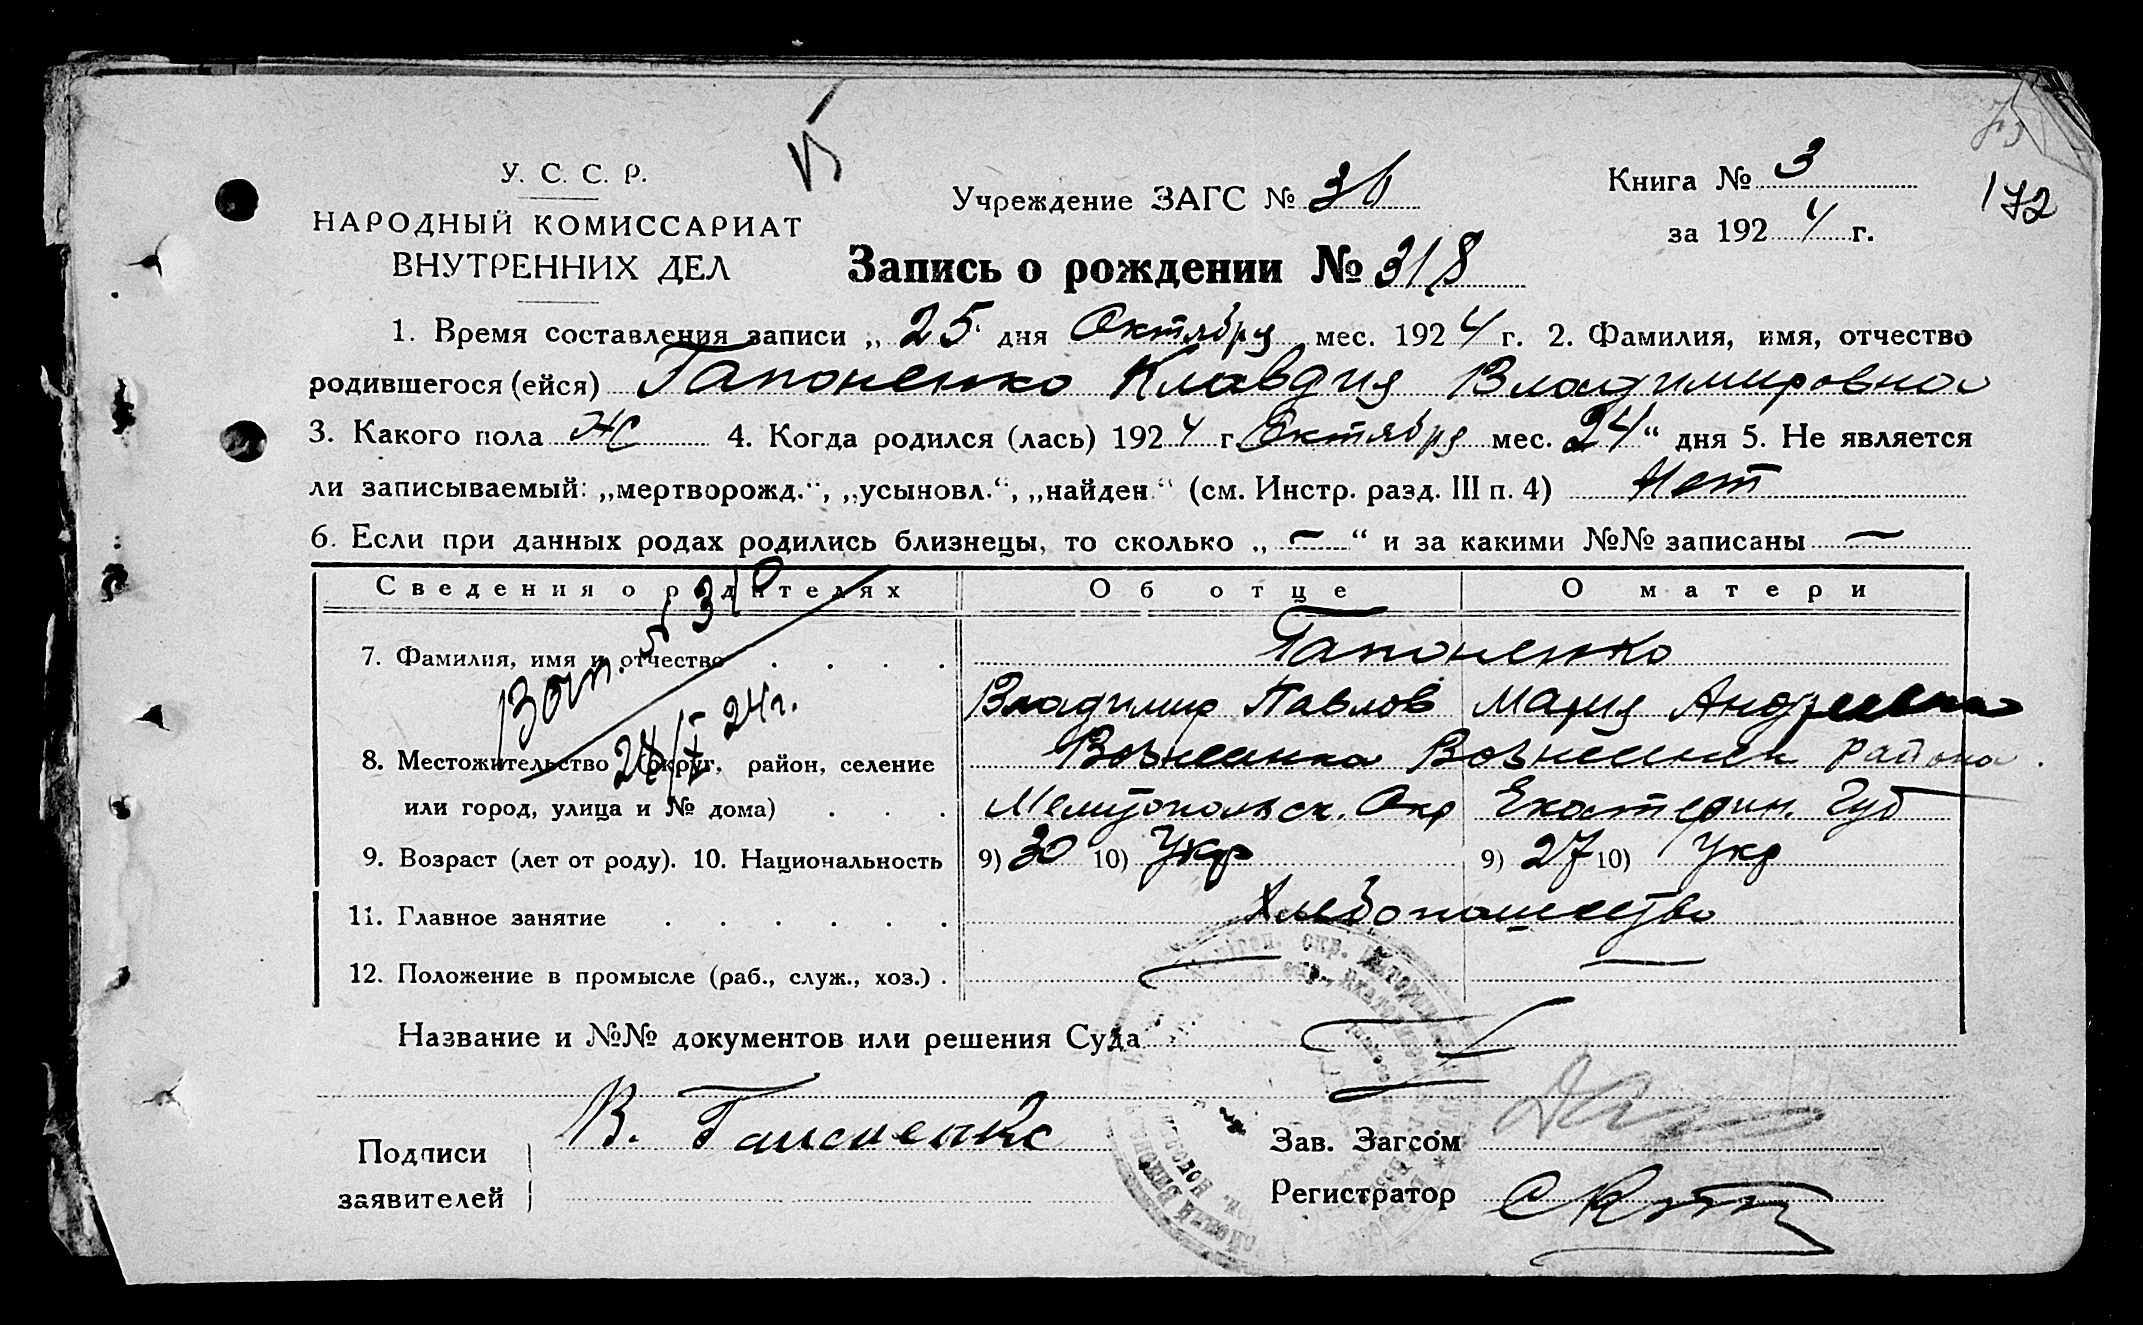 172
У. С. С. Р.
НАРОДНЫЙ КОМИССАРИАТ
ВНУТРЕННИХ ДЕЛ
Учреждение ЗАГС №
Книга № 3
за 1924 г.
Запись о рождении № 318
1. Время составления записи „ 25 дня Октября мес. 1924 г. 2. Фамилия, имя, отчество
родившегося (ейся) Гапоненко Клавдия Владимировна
3. Какого пола Ж 4. Когда родился (лась) 1924 г. Октября мес. 24 “ дня 5. Не является
ли записываемый: „мертворожд.“, „усыновл.“, „найден“ (см. Инстр. разд. III п. 4) Нет
6. Если при данных родах родились близнецы, то сколько „ — “ и за какими №№ записаны —
Сведения о родителях Об отце О матери
7. Фамилия, имя и отчество . . . . Гапоненко
Владимир Павлов Мария Андреевна
8. Местожительство (округ, район, селение Вознесенка района
или город, улица и № дома) . . . Мелитопольск. Окр Екатерин. Губ
24г.
9. Возраст (лет от роду). 10. Национальность 9) 30 10) Укр 9) 27 10) Укр
11. Главное занятие . . . . . . Хлебопашество
12. Положение в промысле (раб., служ., хоз.) . — —
Название и №№ документов или решения Суда
Подписи
заявителей
В. Гапоненко
Зав. Загсом
Регистратор